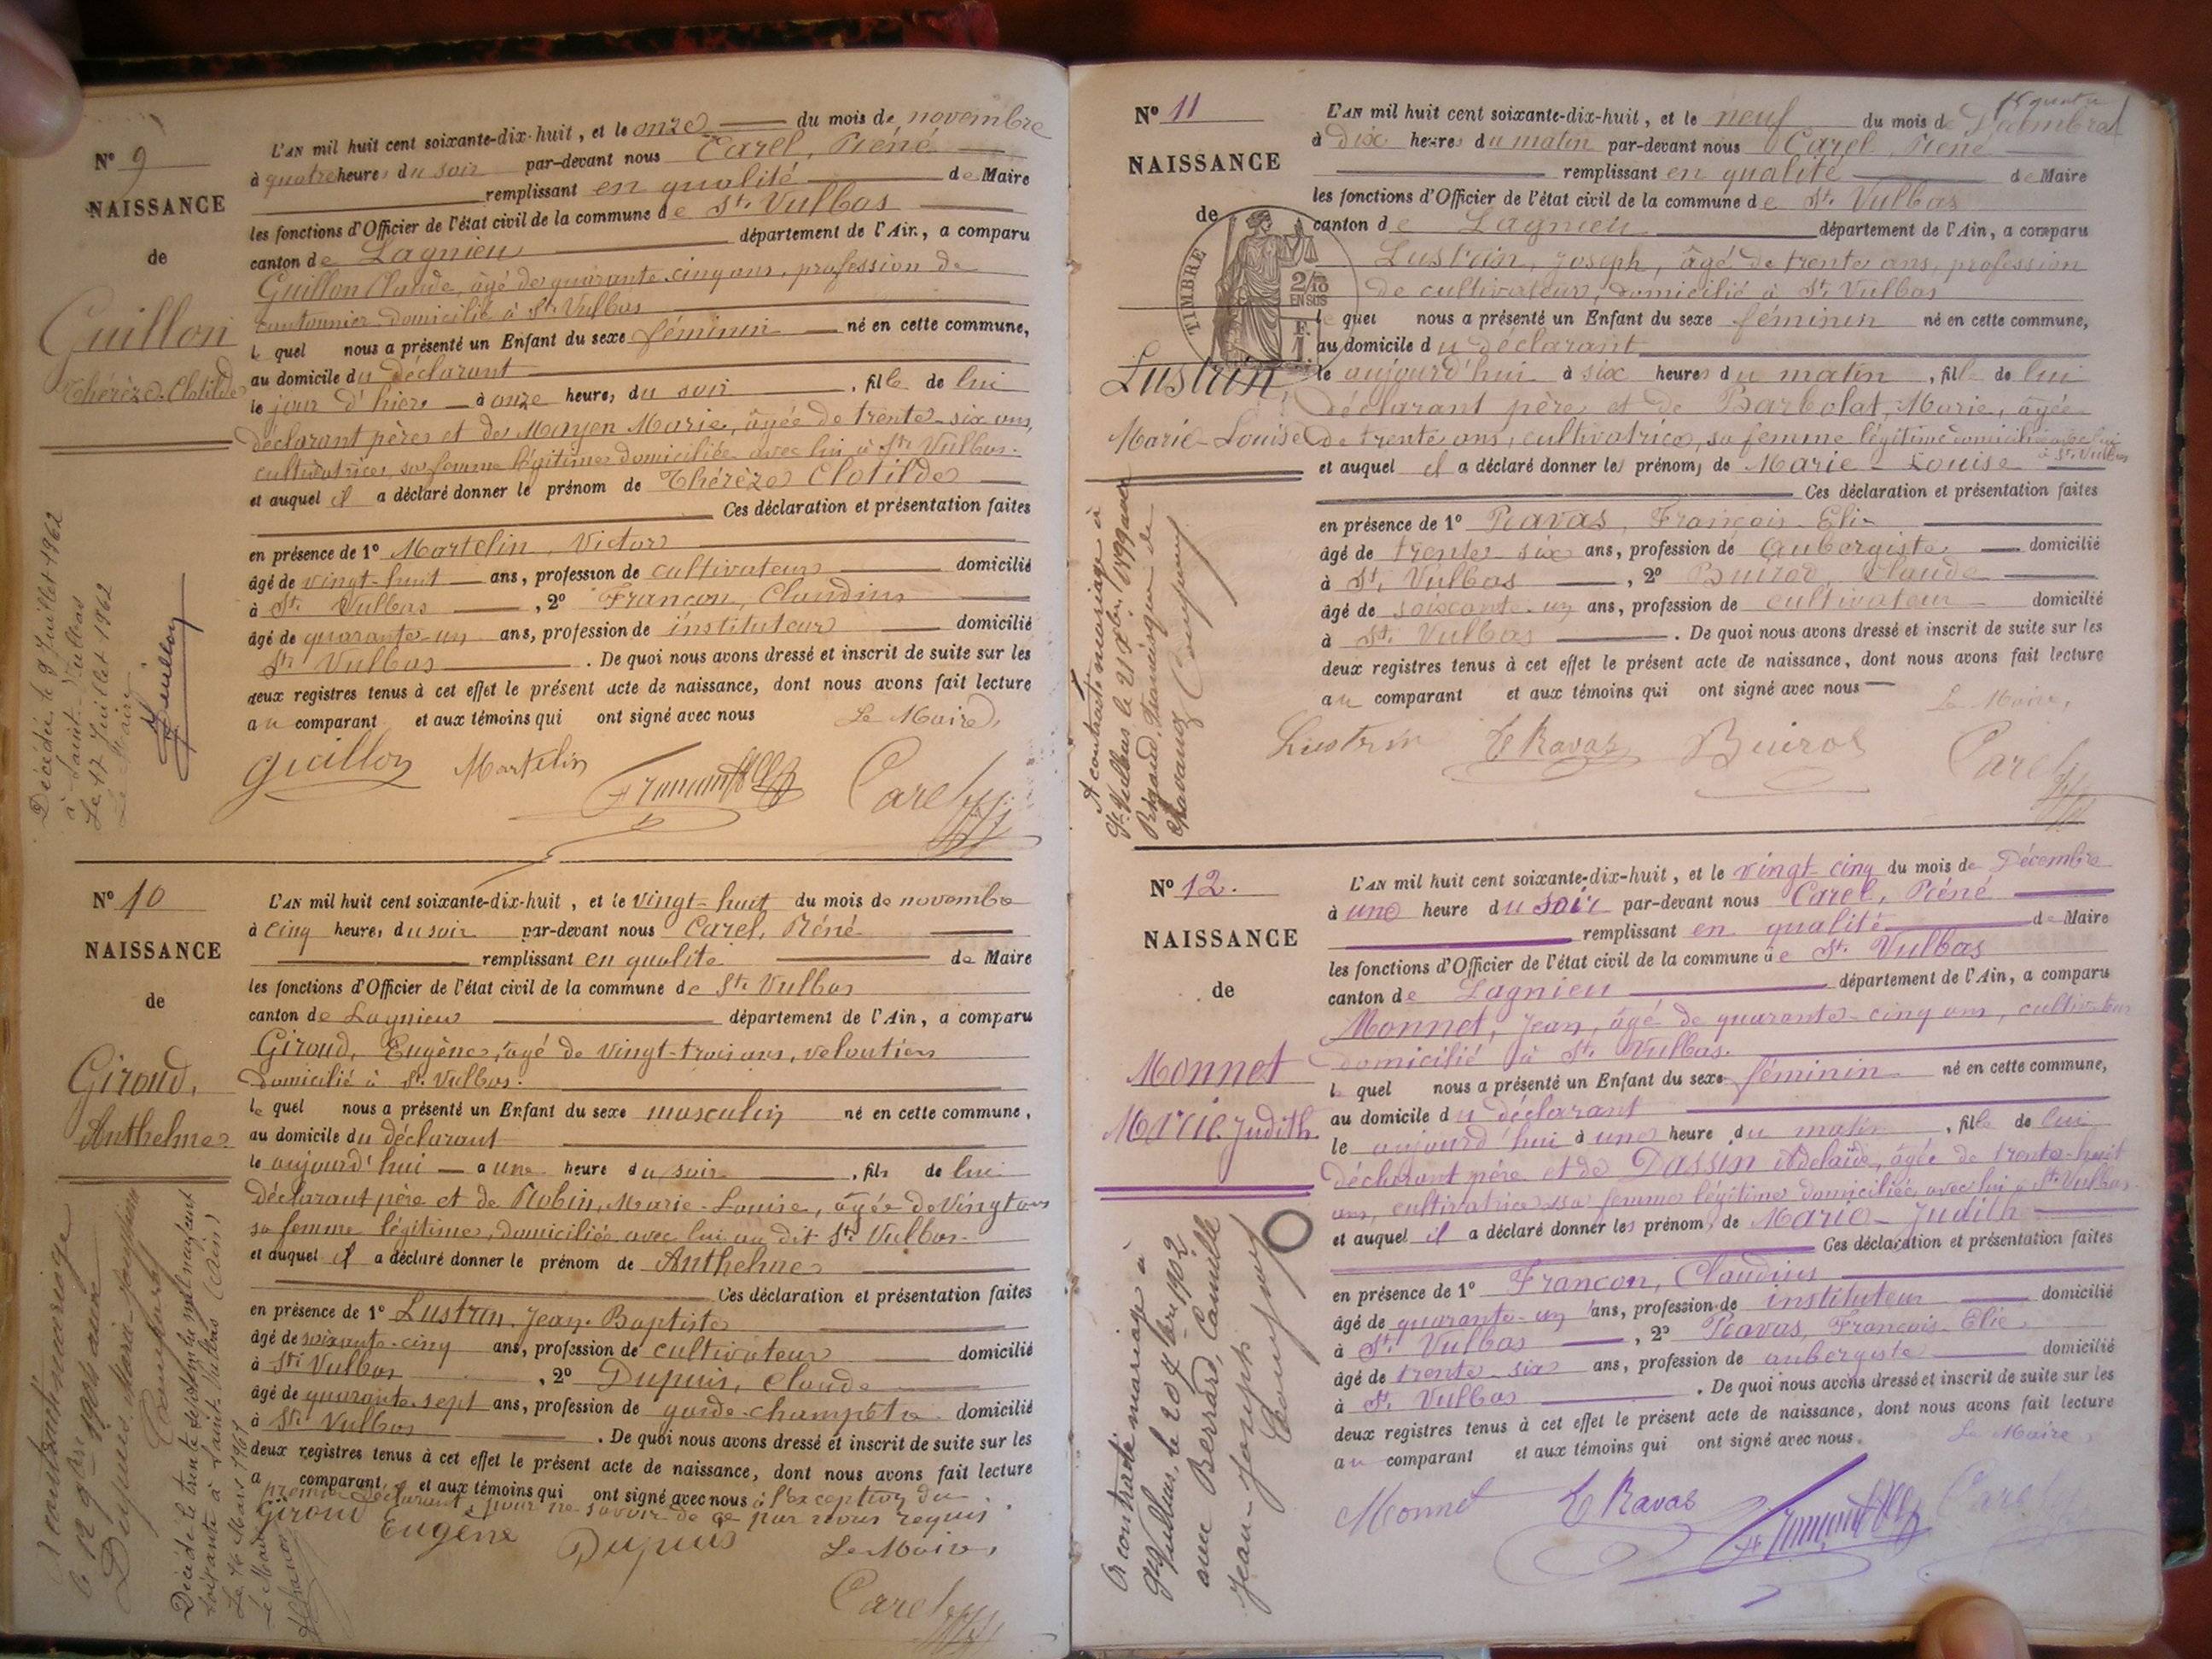 Nº 9
NAISSANCE
de
Guillon
Thérèze Clotilde
L'AN mil huit cent soixante-dix-huit, et le onze du mois de novembre
à quatre heures du soir par-devant nous Carel, Réné
remplissant en qualité de Maire
les fonctions d'Officier de l'état civil de la commune de St. Vulbas
canton de Lagnieu département de l'Ain, a comparu
Guillon Claude, âgé de quarante-cinq ans, profession de
cantonnier domicilié à St. Vulbas
le quel nous a présenté un Enfant du sexe féminin né en cette commune,
au domicile du déclarant
le jour d'hier à onze heures du soir, fille de lui
déclarant père et de Mayen Marie, âgée de trente-six ans,
cultivatrice, sa femme légitime domiciliée avec lui à St. Vulbas.
et auquel il a déclaré donner le prénom de Thérèze Clotilde
Ces déclaration et présentation faites
en présence de 1º Martelin, Victor
âgé de vingt-huit ans, profession de cultivateur domicilié
à St. Vulbas, 2º Françon, Claudius
âgé de quarante-un ans, profession de instituteur domicilié
St. Vulbas. De quoi nous avons dressé et inscrit de suite sur les
deux registres tenus à cet effet le présent acte de naissance, dont nous avons fait lecture
au comparant et aux témoins qui ont signé avec nous Le Maire,
Guillon Martelin Carel
Décédée le 9 Juillet 1962
à Saint-Vulbas
Le 17 Juillet 1962
Le Maire
Nº 10
NAISSANCE
de
Giroud,
Anthelme
L'AN mil huit cent soixante-dix-huit, et le vingt-huit du mois de novembre
à cinq heures du soir par-devant nous Carel, Réné
remplissant en qualité de Maire
les fonctions d'Officier de l'état civil de la commune de St. Vulbas
canton de Lagnieu département de l'Ain, a comparu
Giroud, Eugène, âgé de vingt-trois ans, veloutier
domicilié à St. Vulbas.
le quel nous a présenté un Enfant du sexe masculin né en cette commune,
au domicile du déclarant
le aujourd'hui à une heure du soir, fils de lui
déclarant père et de Robin, Marie-Louise, âgée de vingt ans
sa femme légitime, domiciliée avec lui au dit St. Vulbas.
et auquel il a déclaré donner le prénom de Anthelme
Ces déclaration et présentation faites
en présence de 1º Lustrin, Jean-Baptiste
âgé de soixante-cinq ans, profession de cultivateur domicilié
à St. Vulbas, 2º Dupuis, Claude
âgé de quarante-sept ans, profession de garde-champêtre domicilié
à St. Vulbas. De quoi nous avons dressé et inscrit de suite sur les
deux registres tenus à cet effet le présent acte de naissance, dont nous avons fait lecture
a comparant et aux témoins qui ont signé avec nous à l'exception du
premier déclarant, pour ne savoir de ce par nous requis.
Giroud Eugène Dupuis Le Maire,
Carel
A contracté mariage
Dupuis, Marie-Joséphine
Décédé le trente septembre mil neuf cent
soixante à Saint-Vulbas (Ain)
Le Maire
Nº 11
NAISSANCE
de
TIMBRE
2/10
EN SUS
F.
1.
Lustrin,
Marie-Louise
L'AN mil huit cent soixante-dix-huit, et le neuf du mois de Décembre
à dix heures du matin par-devant nous Carel, Réné
remplissant en qualité de Maire
les fonctions d'Officier de l'état civil de la commune de St. Vulbas
canton de Lagnieu département de l'Ain, a comparu
Lustrin, Joseph, âgé de trente ans, profession
de cultivateur, domicilié à St. Vulbas
le quel nous a présenté un Enfant du sexe féminin né en cette commune,
au domicile du déclarant
le aujourd'hui à six heures du matin, fille de lui
déclarant père et de Barbolat, Marie, âgée
de trente ans, cultivatrice, sa femme légitime domiciliée avec lui
à St. Vulbas
et auquel il a déclaré donner les prénoms de Marie-Louise
Ces déclaration et présentation faites
en présence de 1º Ravas, François-Elie
âgé de trente-six ans, profession de aubergiste domicilié
à St. Vulbas, 2º Buirod, Claude
âgé de soixante-un ans, profession de cultivateur domicilié
à St. Vulbas. De quoi nous avons dressé et inscrit de suite sur les
deux registres tenus à cet effet le présent acte de naissance, dont nous avons fait lecture
au comparant et aux témoins qui ont signé avec nous
Le Maire,
Lustrin E Ravas Buirod Carel
A contracté mariage à
St. Vulbas le 21 Xbre 1899 avec
Nº 12.
NAISSANCE
de
Monnet
Marie Judith
L'AN mil huit cent soixante-dix-huit, et le vingt-cinq du mois de Décembre
à une heure du soir par-devant nous Carel, Réné
remplissant en qualité de Maire
les fonctions d'Officier de l'état civil de la commune de St. Vulbas
canton de Lagnieu département de l'Ain, a comparu
Monnet, Jean, âgé de quarante-cinq ans, cultivateur
domicilié à St. Vulbas.
le quel nous a présenté un Enfant du sexe féminin né en cette commune,
au domicile du déclarant
le aujourd'hui à une heure du matin, fille de lui
déclarant père et de Dassin Adelaïde, âgée de trente-huit
ans, cultivatrice sa femme légitime domiciliée avec lui à St. Vulbas
et auquel il a déclaré donner les prénoms de Marie-Judith
Ces déclaration et présentation faites
en présence de 1º Françon, Claudius
âgé de quarante-un ans, profession de instituteur domicilié
à St. Vulbas, 2º Ravas, François-Elie
âgé de trente-six ans, profession de aubergiste domicilié
à St. Vulbas. De quoi nous avons dressé et inscrit de suite sur les
deux registres tenus à cet effet le présent acte de naissance, dont nous avons fait lecture
au comparant et aux témoins qui ont signé avec nous.
Le Maire,
Monnet E Ravas Carel
A contracté mariage à
St. Vulbas, le 20 7bre 1902
avec Berrard, Camille
Jean-Joseph